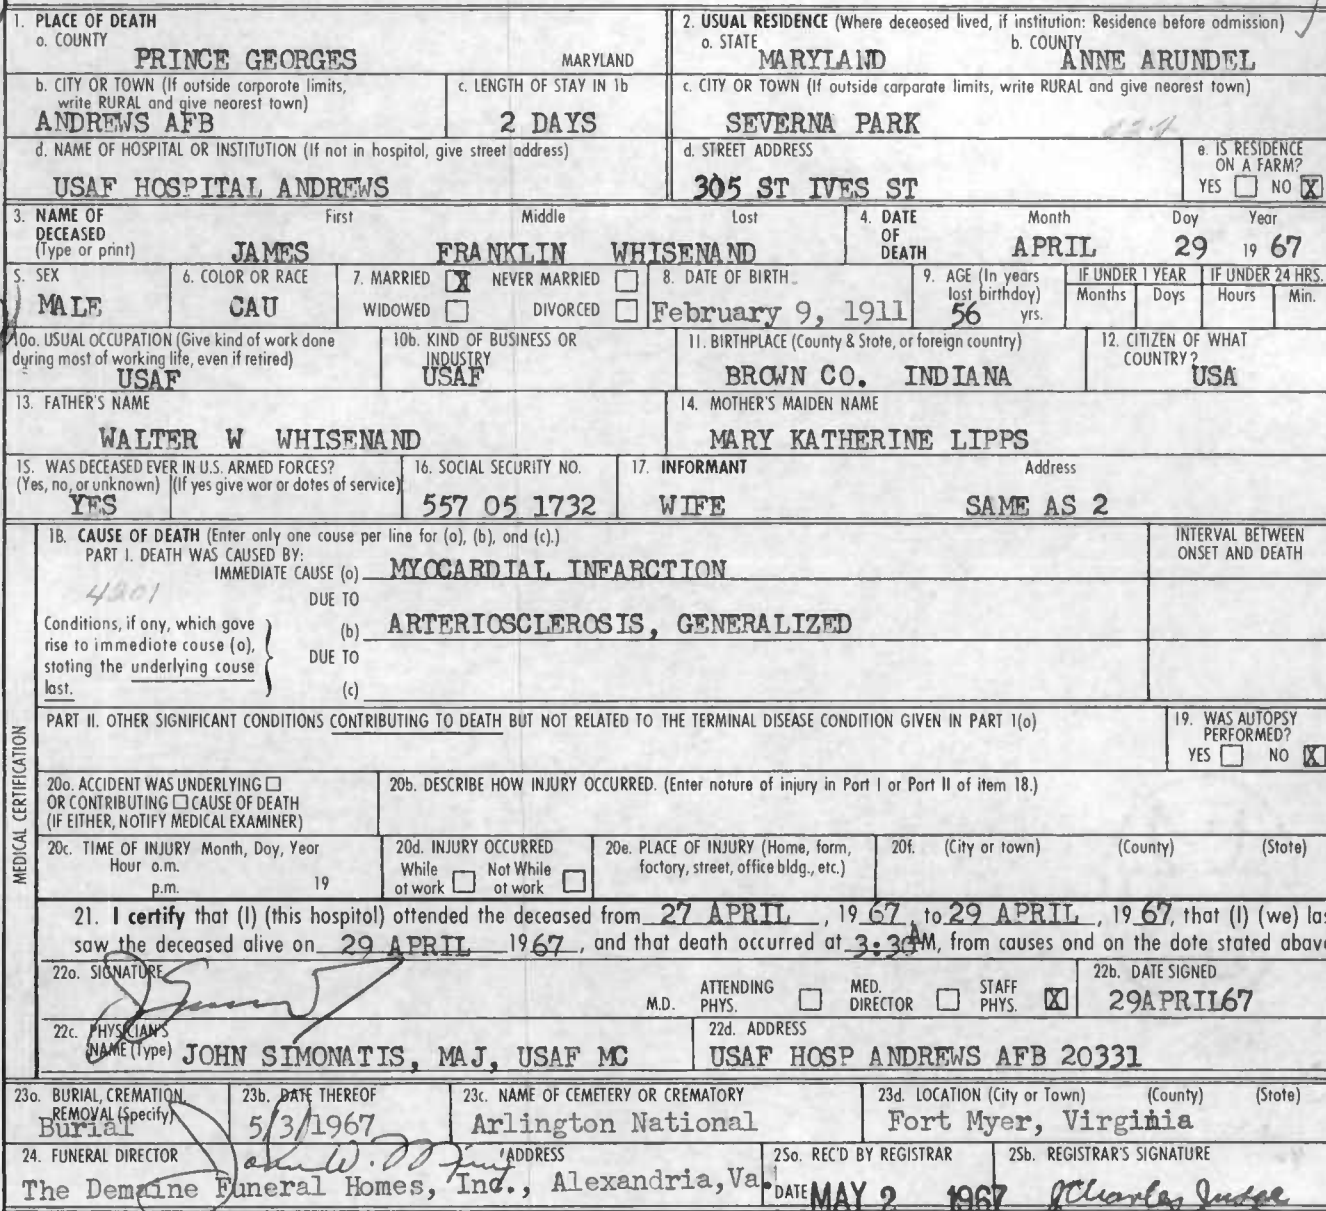 1. PLACE OF DEATH
a. COUNTY
PRINCE GEORGES MARYLAND
2. USUAL RESIDENCE (Where deceased lived, if institution: Residence before admission)
a. STATE b. COUNTY
MARYLAND ANNE ARUNDEL
b. CITY OR TOWN (If outside corporate limits,
write RURAL and give nearest town)
ANDREWS AFB
c. LENGTH OF STAY IN 1b
2 DAYS
c. CITY OR TOWN (If outside corporate limits, write RURAL and give nearest town)
SEVERNA PARK
d. NAME OF HOSPITAL OR INSTITUTION (If not in hospital, give street address)
USAF HOSPITAL ANDREWS
d. STREET ADDRESS
305 ST IVES ST
e. IS RESIDENCE
ON A FARM?
YES NO X
3. NAME OF
DECEASED
(Type or print)
First Middle Last
JAMES FRANKLIN WHISENAND
4. DATE
OF
DEATH
Month Day Year
APRIL 29 19 67
5. SEX
MALE
6. COLOR OR RACE
CAU
7. MARRIED X NEVER MARRIED
WIDOWED DIVORCED
8. DATE OF BIRTH
February 9, 1911
9. AGE (In years
last birthday)
56 yrs.
IF UNDER 1 YEAR IF UNDER 24 HRS.
Months Days Hours Min.
10a. USUAL OCCUPATION (Give kind of work done
during most of working life, even if retired)
USAF
10b. KIND OF BUSINESS OR
INDUSTRY
USAF
11. BIRTHPLACE (County & State, or foreign country)
BROWN CO. INDIANA
12. CITIZEN OF WHAT
COUNTRY?
USA
13. FATHER'S NAME
WALTER W WHISENAND
14. MOTHER'S MAIDEN NAME
MARY KATHERINE LIPPS
15. WAS DECEASED EVER IN U.S. ARMED FORCES?
(Yes, no, or unknown) (If yes give war or dates of service)
YES
16. SOCIAL SECURITY NO.
557 05 1732
17. INFORMANT Address
WIFE SAME AS 2
MEDICAL CERTIFICATION
18. CAUSE OF DEATH (Enter only one cause per line for (a), (b), and (c).)
PART I. DEATH WAS CAUSED BY:
IMMEDIATE CAUSE (a) MYOCARDIAL INFARCTION
INTERVAL BETWEEN
ONSET AND DEATH
4201
DUE TO
(b) ARTERIOSCLEROSIS, GENERALIZED
Conditions, if any, which gave
rise to immediate cause (a),
stating the underlying cause
last.
DUE TO
(c)
PART II. OTHER SIGNIFICANT CONDITIONS CONTRIBUTING TO DEATH BUT NOT RELATED TO THE TERMINAL DISEASE CONDITION GIVEN IN PART 1(a)
19. WAS AUTOPSY
PERFORMED?
YES NO X
20a. ACCIDENT WAS UNDERLYING
OR CONTRIBUTING CAUSE OF DEATH
(IF EITHER, NOTIFY MEDICAL EXAMINER)
20b. DESCRIBE HOW INJURY OCCURRED. (Enter nature of injury in Part I or Part II of item 18.)
20c. TIME OF INJURY Month, Day, Year
Hour a.m.
p.m. 19
20d. INJURY OCCURRED
While Not While
at work at work
20e. PLACE OF INJURY (Home, farm,
factory, street, office bldg., etc.)
20f. (City or town) (County) (State)
21. I certify that (I) (this hospital) attended the deceased from 27 APRIL, 1967, to 29 APRIL, 1967, that (I) (we) las
saw the deceased alive on 29 APRIL 1967, and that death occurred at 3:30 AM, from causes and on the date stated above
22a. SIGNATURE
M.D. ATTENDING
PHYS. MED.
DIRECTOR STAFF
PHYS. X
22b. DATE SIGNED
29APRIL67
22c. PHYSICIAN'S
NAME (Type) JOHN SIMONATIS, MAJ, USAF MC
22d. ADDRESS
USAF HOSP ANDREWS AFB 20331
23a. BURIAL, CREMATION,
REMOVAL (Specify)
Burial
23b. DATE THEREOF
5/3/1967
23c. NAME OF CEMETERY OR CREMATORY
Arlington National
23d. LOCATION (City or Town) (County) (State)
Fort Myer, Virginia
24. FUNERAL DIRECTOR ADDRESS
The Demaine Funeral Homes, Inc., Alexandria, Va.
25a. REC'D BY REGISTRAR
DATE MAY 2 1967
25b. REGISTRAR'S SIGNATURE
Charles Judge